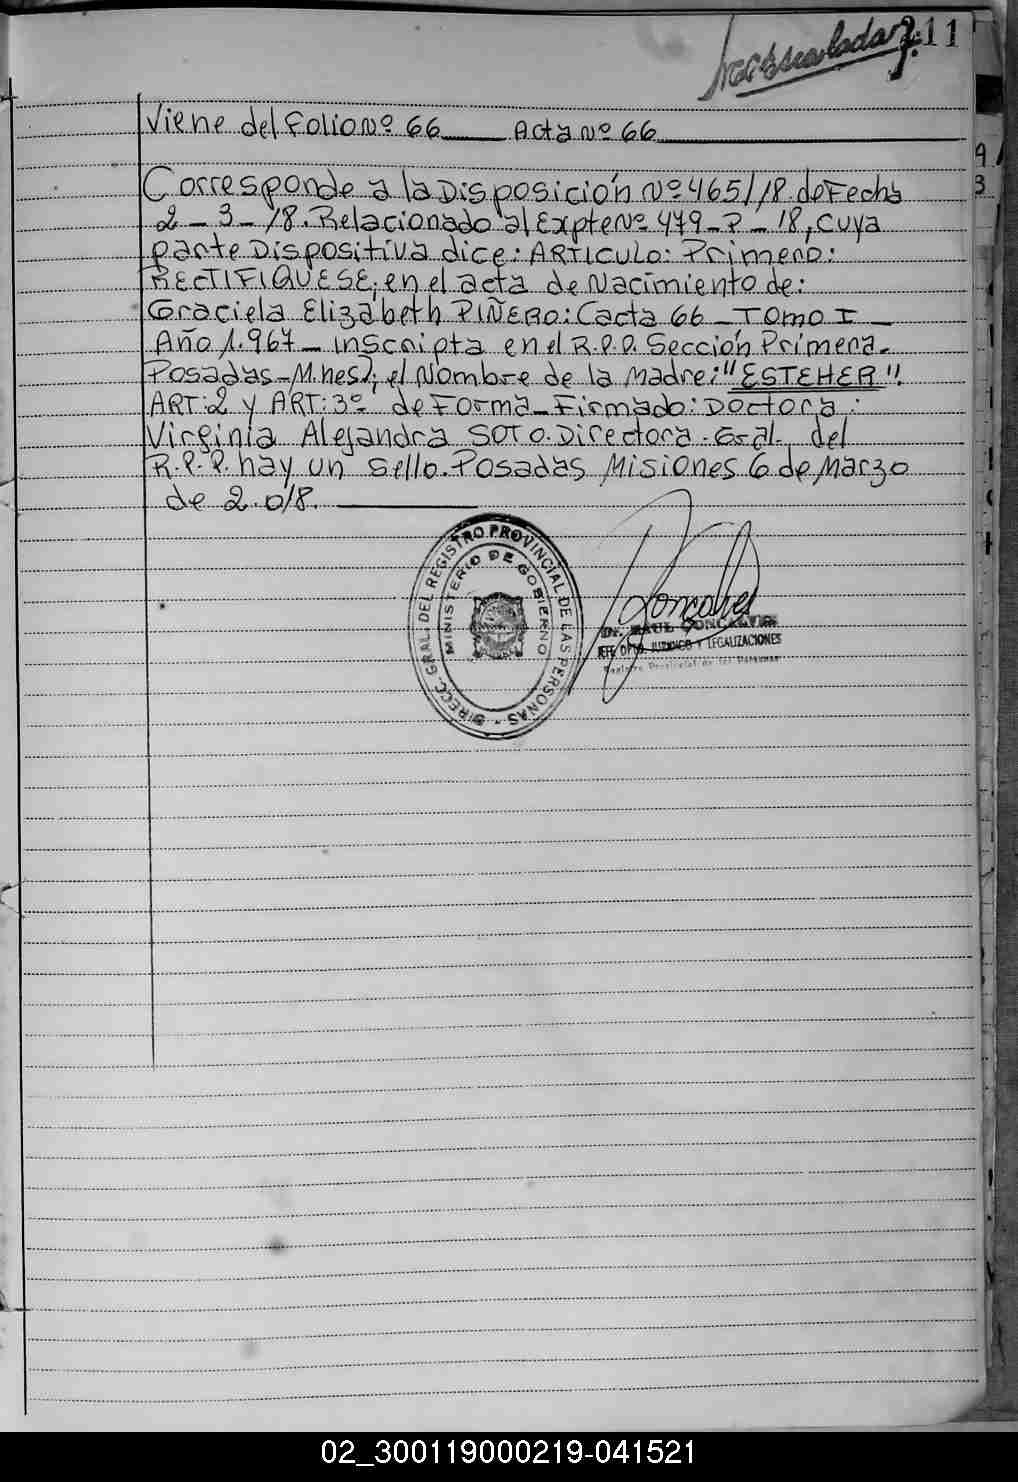 211
Viene del Folio Nº 66 Acta Nº 66
Corresponde a la Disposición Nº 465/18. de Fecha
2-3-18. Relacionado al Expte Nº 479-P-18, cuya
parte Dispositiva dice: ARTICULO: Primero:
RECTIFIQUESE, en el acta de Nacimiento de:
Graciela Elizabeth PIÑERO: (acta 66 - TOMO I -
Año 1.967 - inscripta en el R.P.P. Sección Primera.
Posadas - M.nes), el Nombre de la Madre: "ESTEHER".
ART: 2 y ART: 3º de Forma - Firmado: Doctora:
Virginia Alejandra SOTO. Directora. Gral. del
R.P.P. hay un sello. Posadas Misiones 6 de Marzo
de 2.018.
DIRECC. GRAL. DEL REGISTRO PROVINCIAL DE LAS PERSONAS -
MINISTERIO DE GOBIERNO
Dr. RAUL GONCALVES
JEFE DPTO. JURIDICO Y LEGALIZACIONES
Registro Provincial de las Personas
9
3
02_300119000219-041521